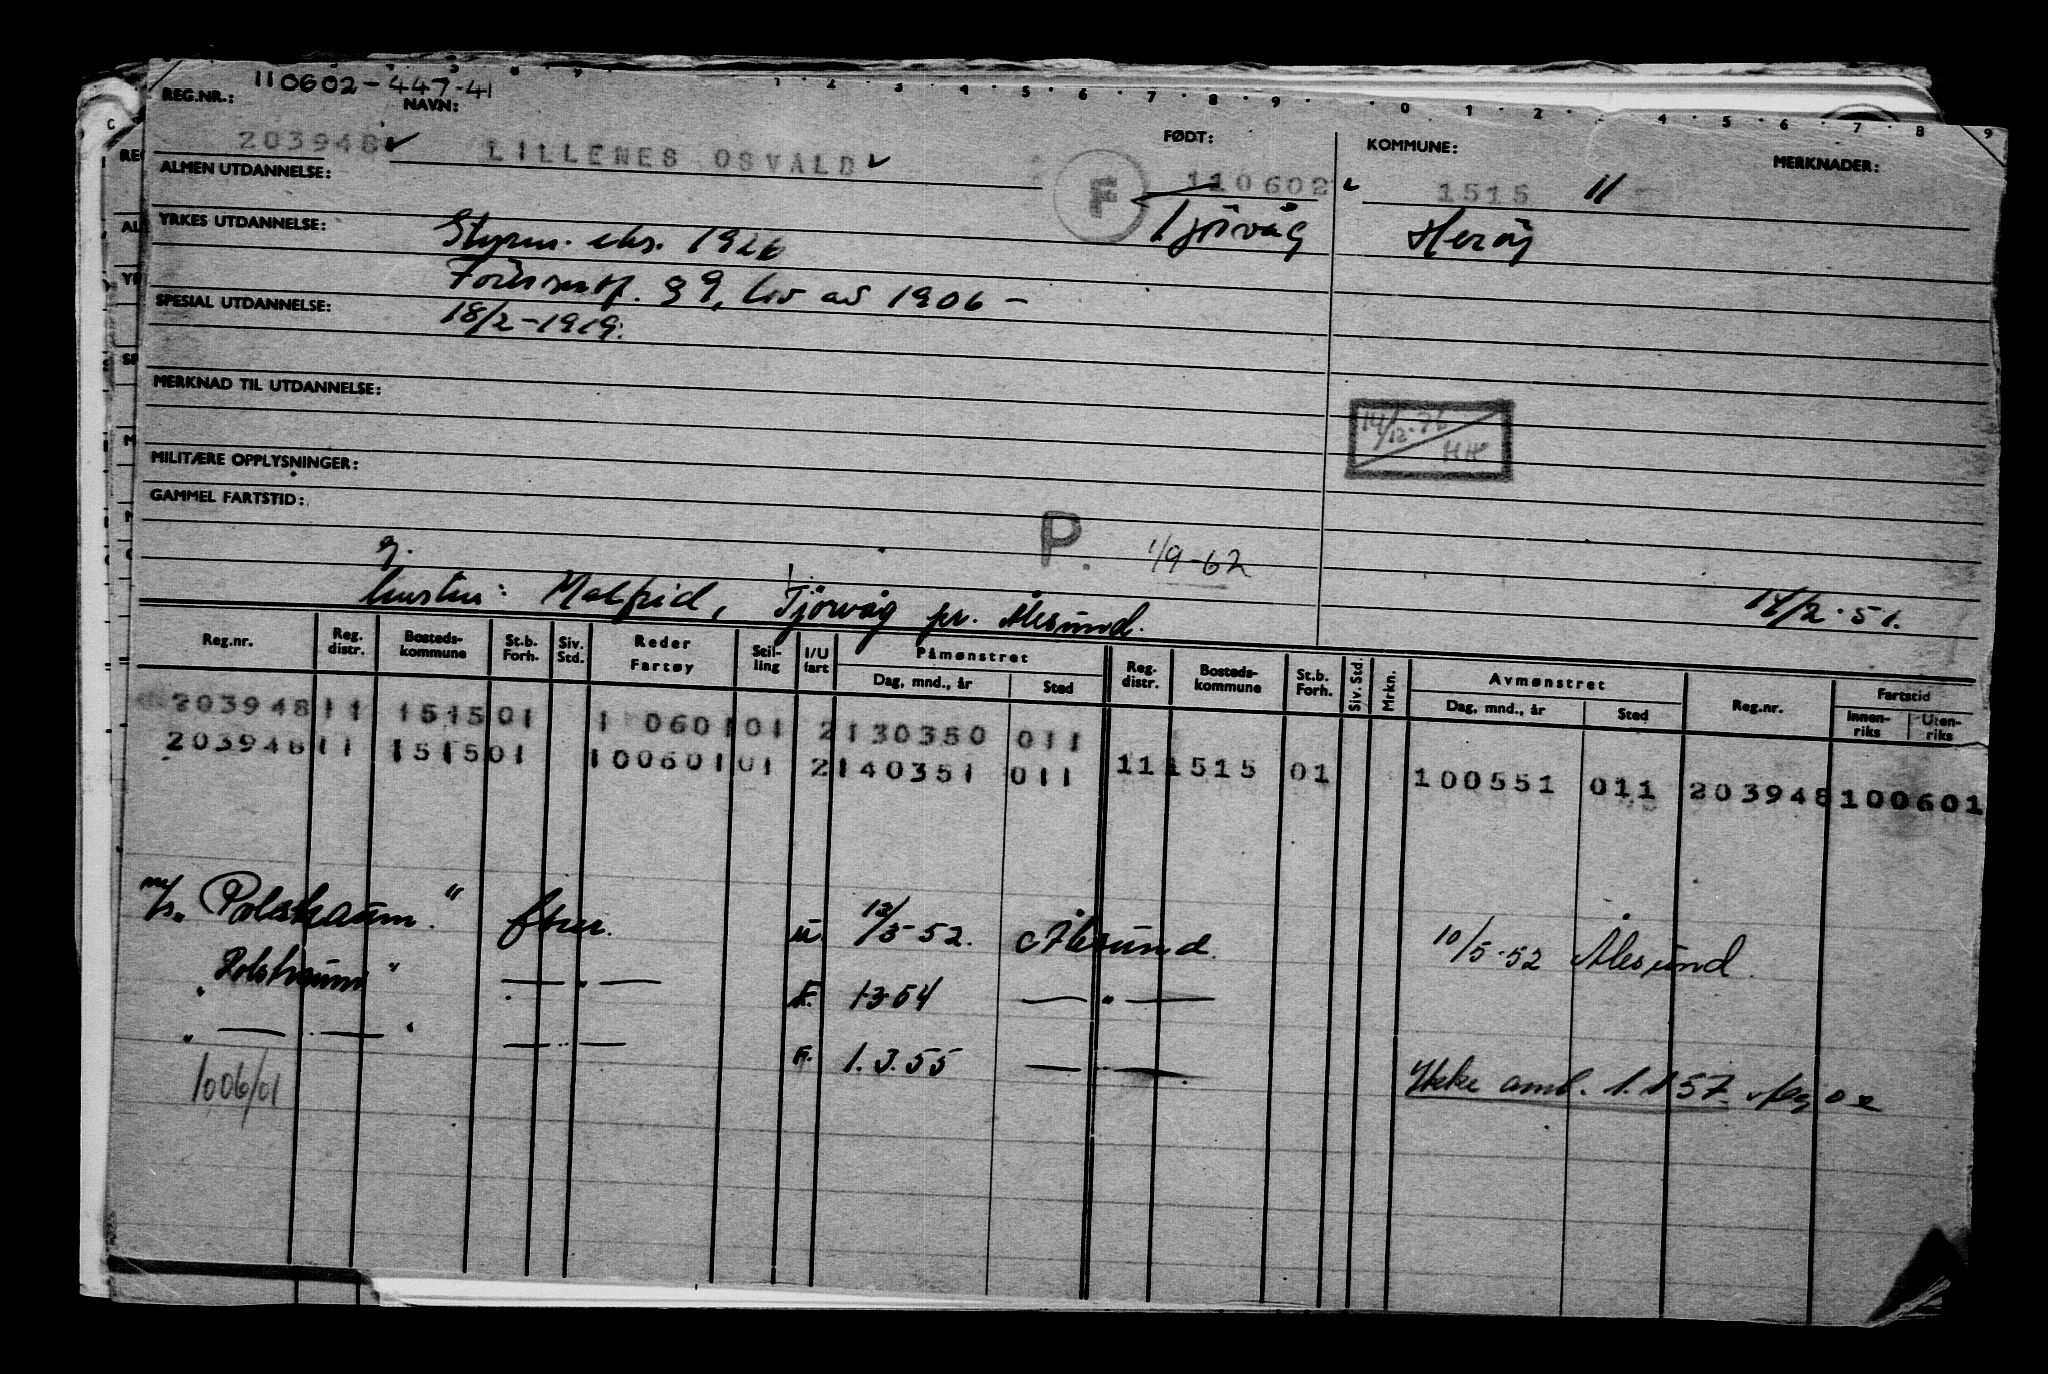 110602-447-41
REG.NR.: NAVN: FØDT: KOMMUNE: MERKNADER:
203948 LILLENES OSVALD F 110602 1515 11
ALMEN UTDANNELSE:
Tjörvåg Heröy
YRKES UTDANNELSE: Styrm. eks. 1926
§ 9, lov av 1906 –
SPESIAL UTDANNELSE: 18/2-1919.
MERKNAD TIL UTDANNELSE:
14/12-76
HH
MILITÆRE OPPLYSNINGER:
GAMMEL FARTSTID:
P. 1/9-62
g.
hustru: Malfrid, Tjörvåg pr. Ålesund. 14/2-51.
Reg.nr. Reg. distr. Bosteds-kommune St.b. Forh. Siv. Std. Reder Fartøy Stil-ling I/U fart Påmønstret Dag, mnd., år Sted Reg. distr. Bosteds-kommune St.b. Forh. Siv. Std. Mrkn. Avmønstret Dag, mnd., år Sted Reg.nr. Fartstid Innen-riks Uten-riks
203948 11 1515 01 1 0601 01 2 130350 011
203948 11 1515 01 100601 01 2 140351 011 11 1515 01 100551 011 203948 100601
m/s „Polshaum" förer. u. 13/3-52. Ålesund. 10/5-52 Ålesund.
„ Polshaum" — „ — F. 1-3-54 — „ —
„ — . — " — „ — F. 1.3.55 — „ — Ikke omb. 1.1 57.
1006/01